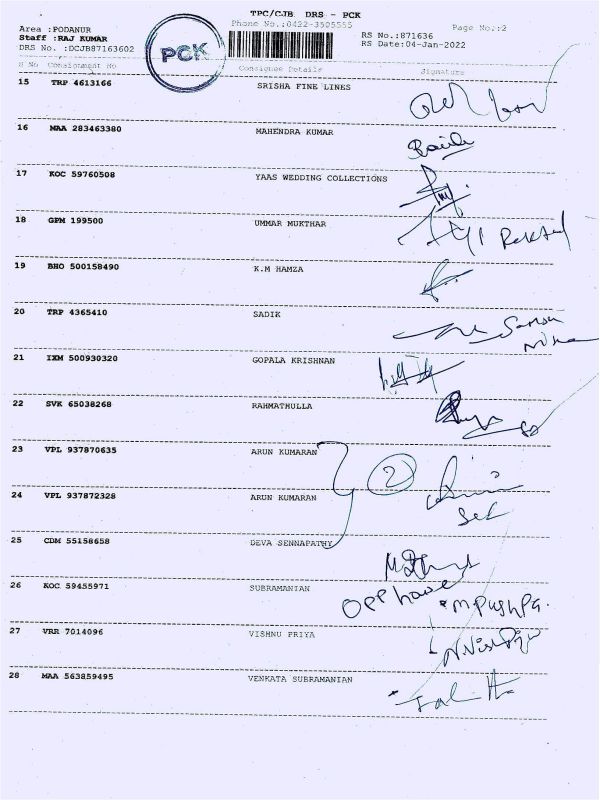 TPC/CJB DRS - PCK
Phone No.:0422-3505555 Page No.:2
Area :PODANUR
Staff :RAJ KUMAR
DRS No. :DCJB87163602
PCK
RS No.:871636
RS Date:04-Jan-2022
S No Consignment No Consignee Details Signature
15 TRP 4613166 SRISHA FINE LINES
16 MAA 283463380 MAHENDRA KUMAR
17 KOC 59760508 YAAS WEDDING COLLECTIONS
18 GPM 199500 UMMAR MUKTHAR
19 BHO 500158490 K.M HAMZA
20 TRP 4365410 SADIK
21 IXM 500930320 GOPALA KRISHNAN
22 SVK 65038268 RAHMATHULLA
23 VPL 937870635 ARUN KUMARAN
2
24 VPL 937872328 ARUN KUMARAN
25 CDM 55158658 DEVA SENNAPATHY
26 KOC 59455971 SUBRAMANIAN
M Pushpa.
27 VRR 7014096 VISHNU PRIYA
28 MAA 563859495 VENKATA SUBRAMANIAN